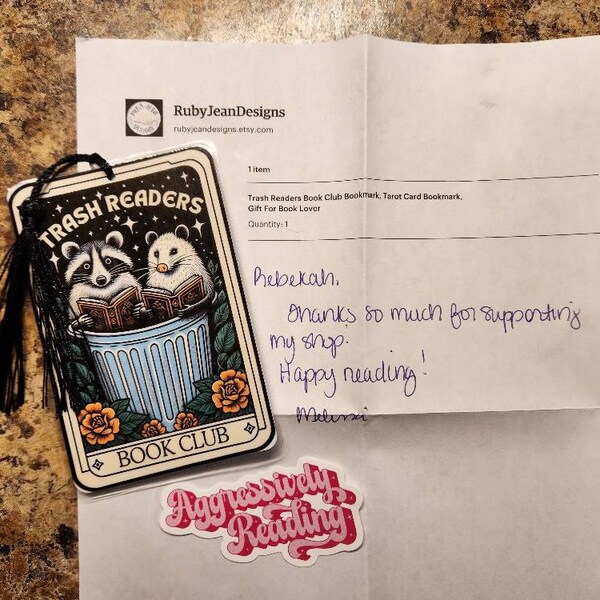 RubyJeanDesigns
rubyjeandesigns.etsy.com
1 item
Trash Readers Book Club Bookmark, Tarot Card Bookmark,
Gift For Book Lover
Quantity: 1
TRASH READERS
BOOK CLUB
Rebekah,
Thanks so much for supporting
my shop.
Happy reading!
Melissa
Aggressively
Reading